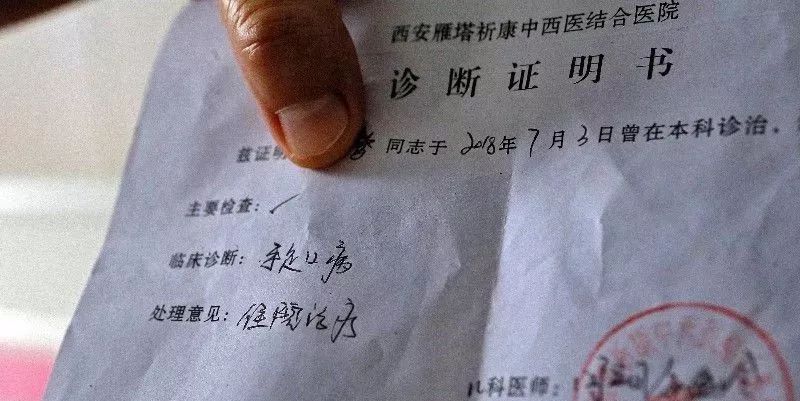 西安雁塔祈康中西医结合医院
诊断证明书
兹证明 同志于 2018年7月3日曾在本科诊治、
主要检查：
临床诊断：手足口病
处理意见：住院治疗
儿科医师：